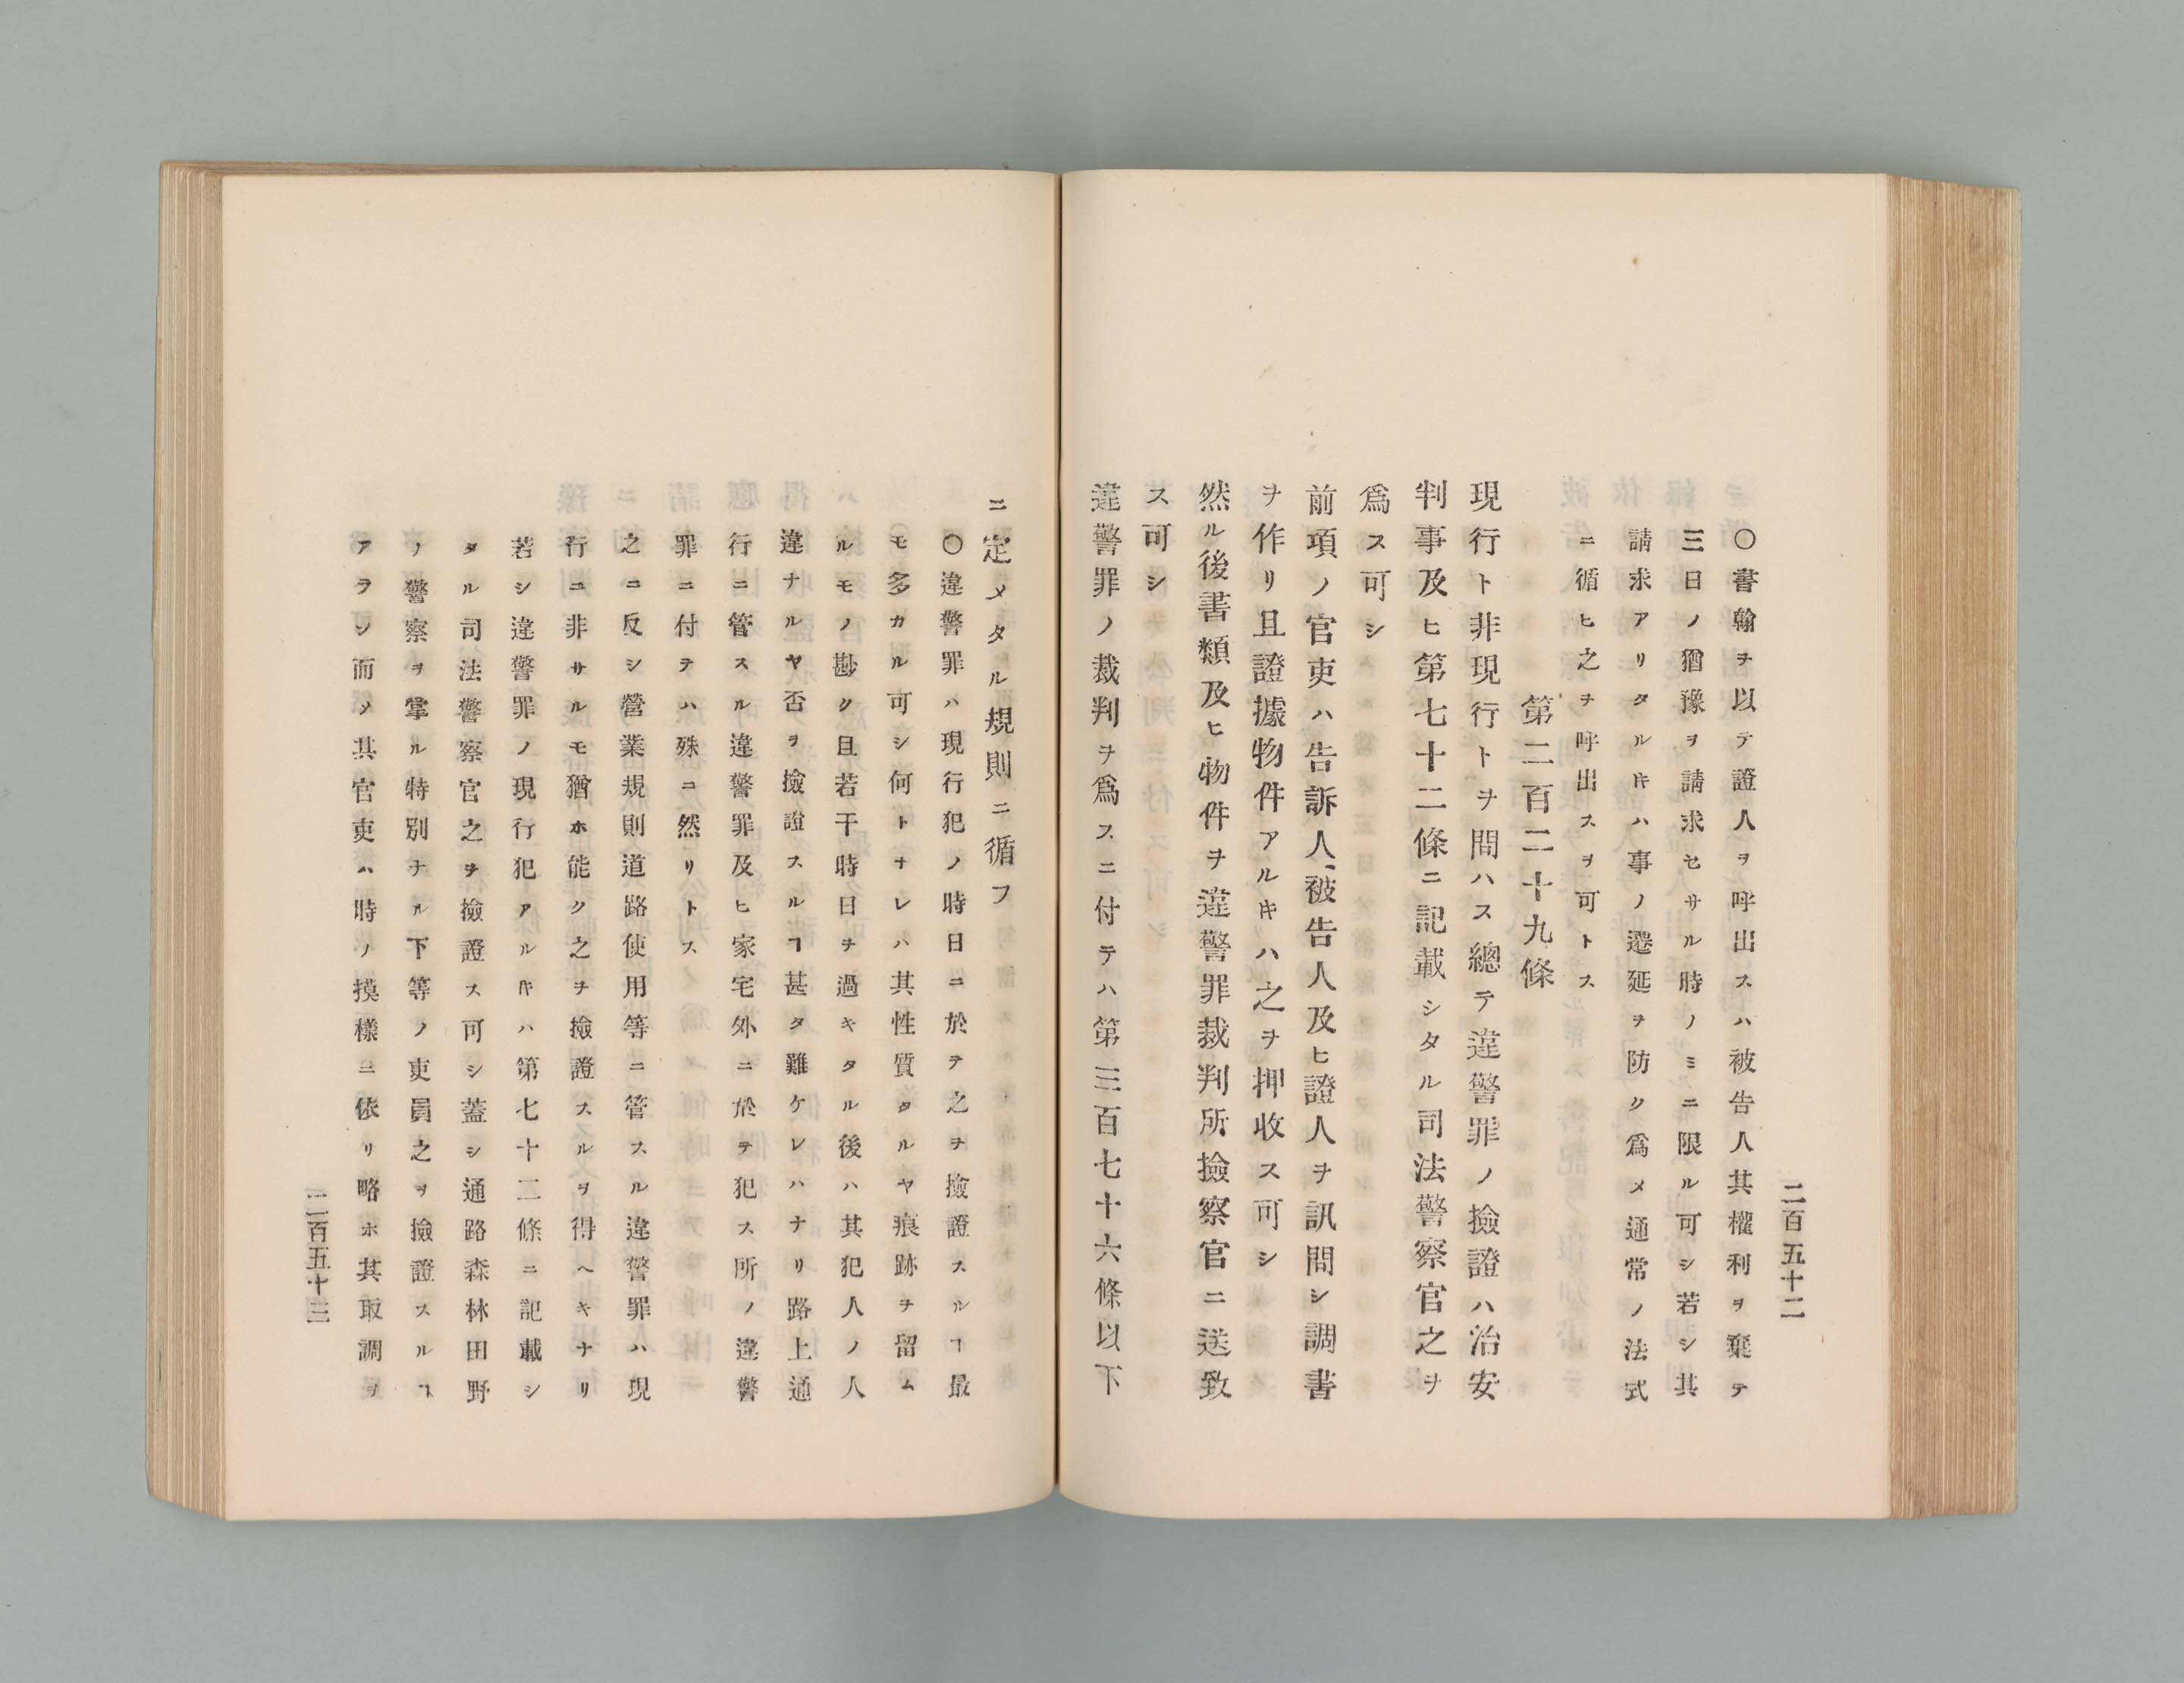 二百五十二
〇書翰ヲ以テ證人ヲ呼出スハ被告人其權利ヲ棄テ
三日ノ猶豫ヲ請求セサル時ノミニ限ル可シ若シ其
請求アリタルキハ事ノ遷延ヲ防ク爲メ通常ノ法式
ニ循ヒ之ヲ呼出スヲ可トス
第二百二十九條
現行ト非現行トヲ問ハス總テ違警罪ノ撿證ハ治安
判事及ヒ第七十二條ニ記載シタル司法警察官之ヲ
爲ス可シ
前項ノ官吏ハ告訴人、被告人及ヒ證人ヲ訊問シ調書
ヲ作リ且證據物件アルキハ之ヲ押收ス可シ
然ル後書類及ヒ物件ヲ違警罪裁判所撿察官ニ送致
ス可シ
違警罪ノ裁判ヲ爲スニ付テハ第三百七十六條以下
ニ定メタル規則ニ循フ
〇違警罪ハ現行犯ノ時日ニ於テ之ヲ撿證スルヿ最
モ多カル可シ何トナレハ其性質タルヤ痕跡ヲ留ム
ルモノ尠ク且若干時日ヲ過キタル後ハ其犯人ノ人
違ナルヤ否ヲ撿證スルヿ甚タ難ケレハナリ路上通
行ニ管スル違警罪及ヒ家宅外ニ於テ犯ス所ノ違警
罪ニ付テハ殊ニ然リトス
之ニ反シ營業規則道路使用等ニ管スル違警罪ハ現
行ニ非サルモ猶ホ能ク之ヲ撿證スルヲ得ヘキナリ
若シ違警罪ノ現行犯アルキハ第七十二條ニ記載シ
タル司法警察官之ヲ撿證ス可シ蓋シ通路森林田野
ノ警察ヲ掌ル特別ナル下等ノ吏員之ヲ撿證スルヿ
アラン而メ其官吏ハ時ノ摸樣ニ依リ略ホ其取調ヲ
二百五十三